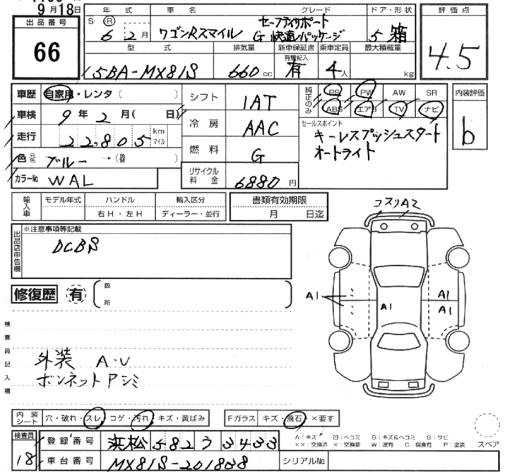 9月18日
出品番号
66
年 式 車 名 グレード ドア・形状
S Ⓡ 6年 2月 ワゴンRスマイル セーフティサポート G 快適パッケージ 5 箱
型 式 排気量 新車保証書 乗車定員 最大積載量
5BA-MX81S 660cc 有 4人 kg
評価点
4.5
車歴 自家用・レンタ( )
車検 9年2月( 日)
走行 22,805 km マイル
色 ブルー →( )
カラーNo WAL
シフト 1AT
冷房 AAC
燃料 G
リサイクル料金 6880円
純正のみ PS PW AW SR
ABS エアB TV ナビ
セールスポイント
キーレスプッシュスタート
オートライト
内装評価
b
輸入車 モデル年式 ハンドル 輸入区分
年 右H・左H ディーラー・並行
書類有効期限
月 日迄
出品店申告欄
※注意事項等記載
DCBS
修復歴 有 箇所
コスリA2
A1
A1
A1
A1
検査員記入欄
外装 A・U
ボンネットPシミ
内装シート 穴・破れ・スレ・コゲ・汚れ・キズ・黄ばみ Fガラス キズ・飛石・×要す
検査員
18
登録番号 浜松582う3433
車台番号 MX81S-201838
シリアルNo
スペア